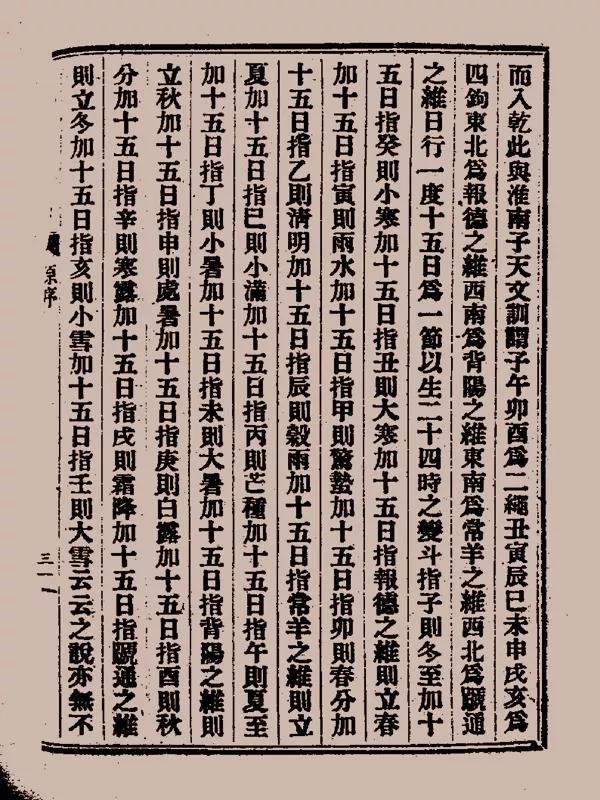 而入乾此與淮南子天文訓謂子午卯酉爲二繩丑寅辰巳未申戌亥爲
四鉤東北爲報德之維西南爲背陽之維東南爲常羊之維西北爲蹏通
之維日行一度十五日爲一節以生二十四時之變斗指子則冬至加十
五日指癸則小寒加十五日指丑則大寒加十五日指報德之維則立春
加十五日指寅則雨水加十五日指甲則驚蟄加十五日指卯則春分加
十五日指乙則清明加十五日指辰則穀雨加十五日指常羊之維則立
夏加十五日指巳則小滿加十五日指丙則芒種加十五日指午則夏至
加十五日指丁則小暑加十五日指未則大暑加十五日指背陽之維則
立秋加十五日指申則處暑加十五日指庚則白露加十五日指酉則秋
分加十五日指辛則寒露加十五日指戌則霜降加十五日指蹏通之維
則立冬加十五日指亥則小雪加十五日指壬則大雪云云之說亦無不
原序
三一